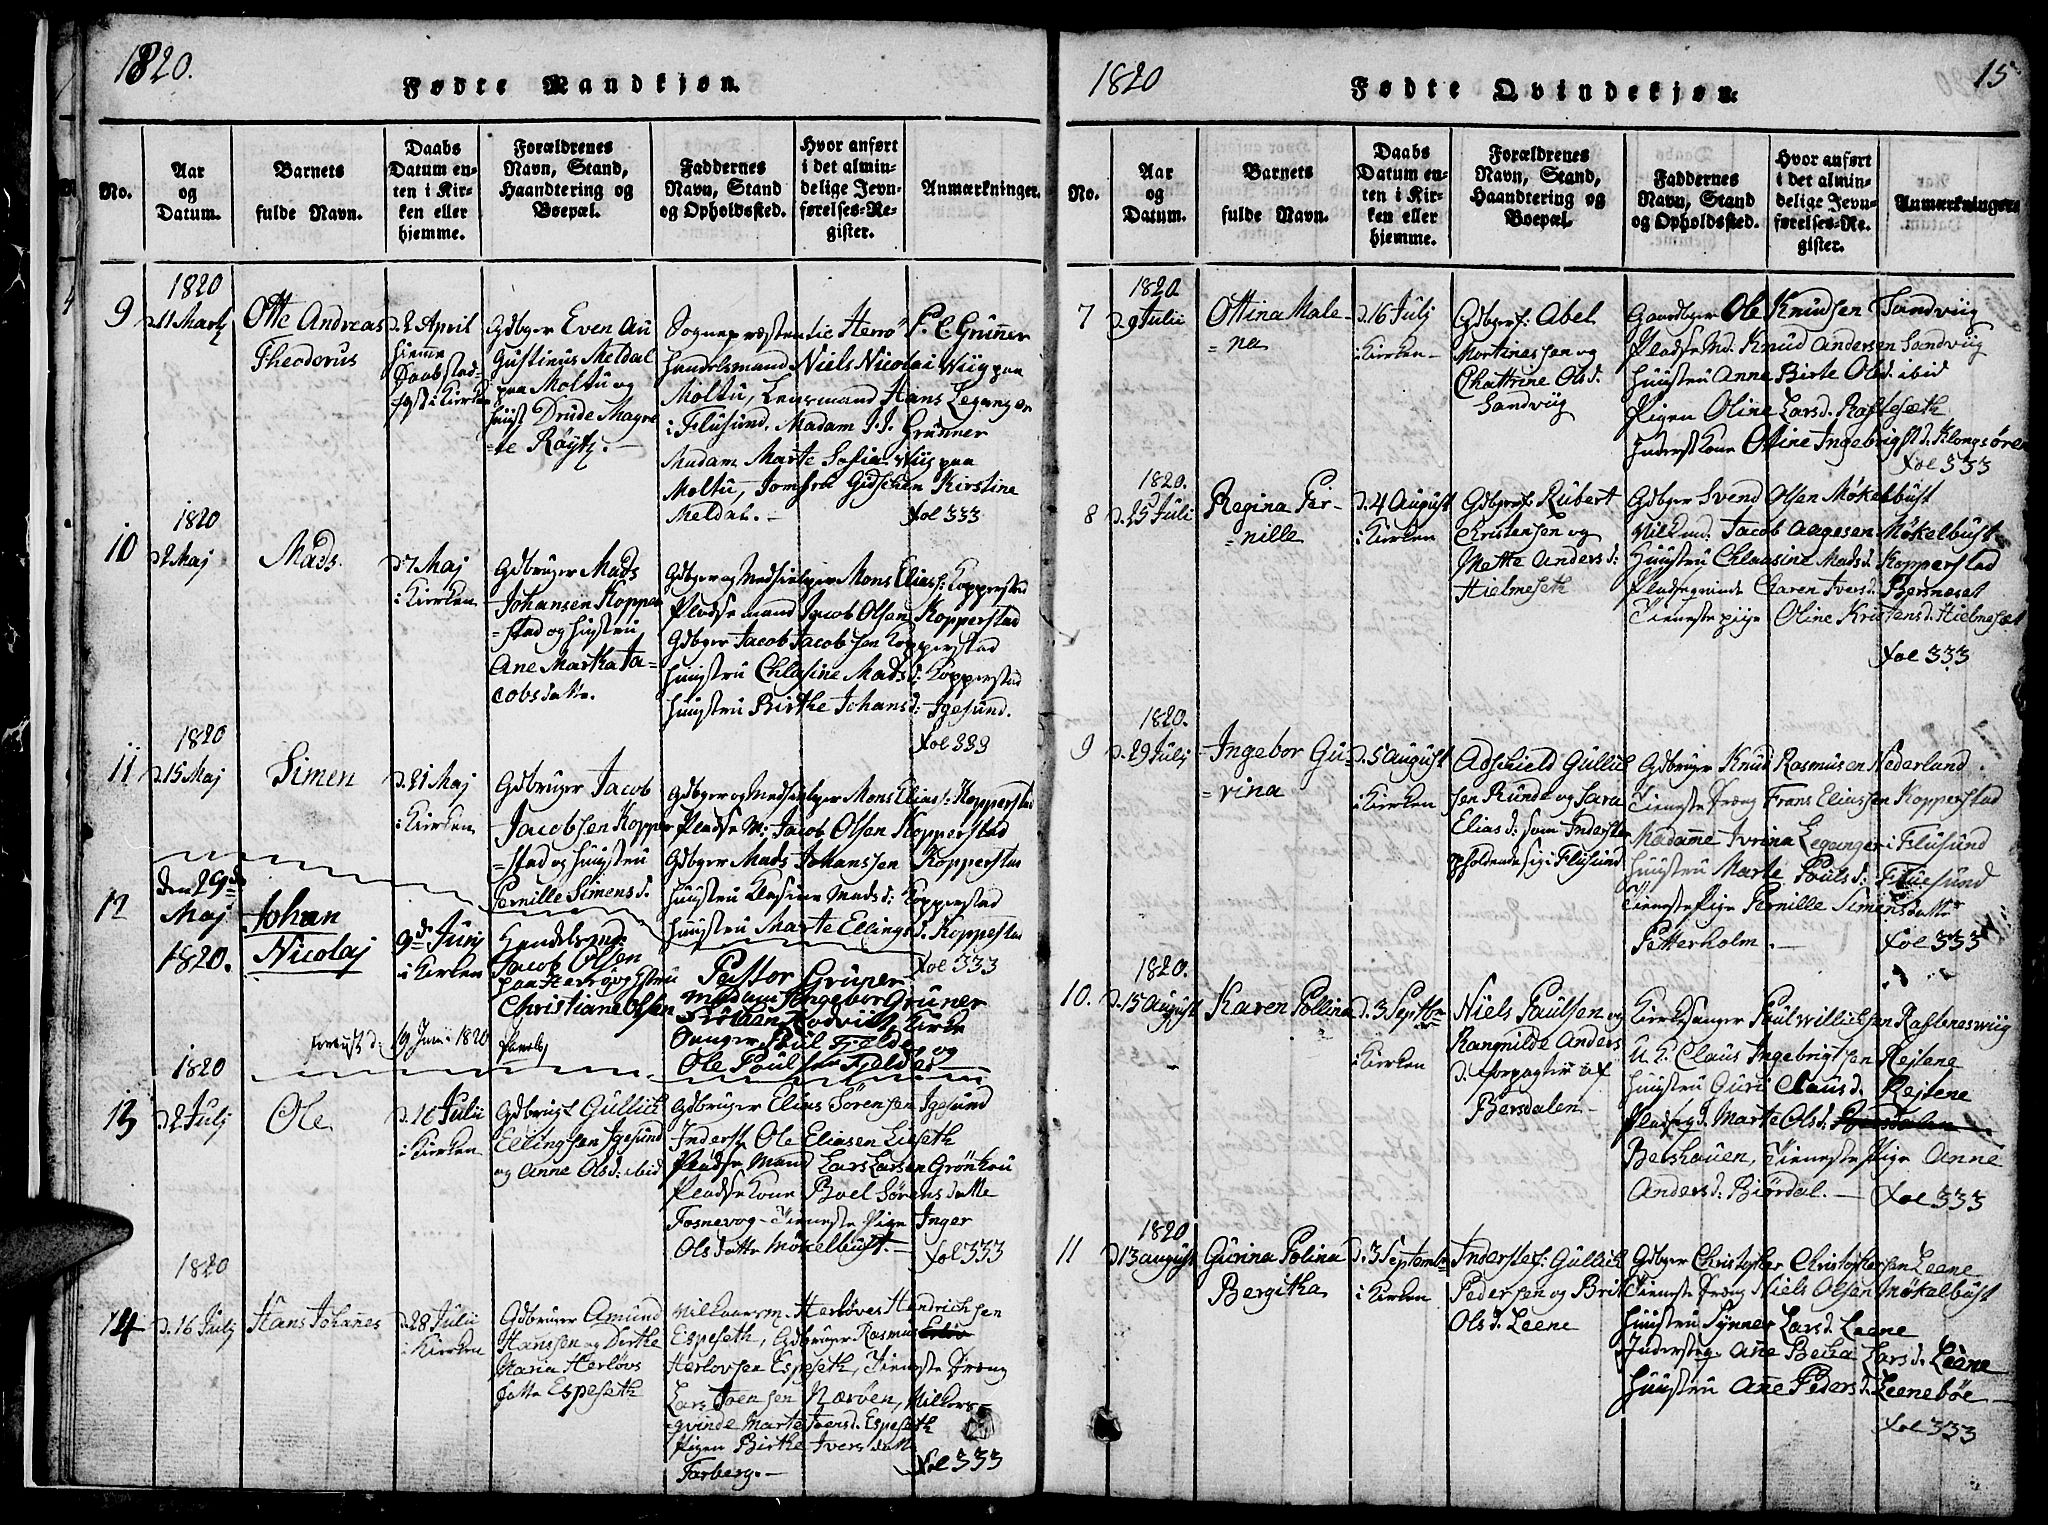 1820.
Fødte Mandkjøn.
No.
Aar
og
Datum.
Barnets
fulde Navn.
Daabs
Datum en-
ten i Kir-
ken eller
hjemme.
Forældrenes
Navn, Stand,
Haandtering og
Boepæl.
Faddernes
Navn, Stand
og Opholdssted.
Hvor anført
i det almin-
delige Jevn-
førelses-Re-
gister.
Anmærkninger.
9
1820
d. 11 Marty
Otte Andreas
Theodorus
d. 2 April
hiemme
Daabsted-
fæst i Kirken
Gdbger Even Au
gustinus Meldal
paa Moltu og
Hust Drude Magre
-te Røytz.
Sognepræsten Lic Herrö F. C Gruner
Handelsmand Niels Nicolai Wiig paa
Moltu, Lensmand Hans Leganger
i Flusund, Madam J. J. Gruner
Madam Marte Sofia Wiig paa
Moltu, Jomfru Gidschen Kirstine
Meldal.
Fol 333
10
1820
d. 2 Maj
Mads.
d. 7 Maj
i Kirken
Gdbruger Mads
Johansen Kopper
-stad og Hustru
Ane Marka Ja-
cobsdatte.
Gdbger og Medhielper Mons Elias: Kopperstad
Pladsemand Jacob Olsen Kopperstad
Gdbger Jacob Jacobsen Kopperstad
Huustru Chlasine Mads d: Kopperstad
Huustru Birthe Johans d: Igesund.
Fol 333
11
1820
d. 15 Maj
Simen
d. 21 Maj
i Kirken
Gdbruger Jacob
Jacobsen Kopper
-stad og Huustru
Pernille Simens d.
Gdbger og Medhielper Mons Elias: Kopperstad
Pladse M: Jacob Olsen Kopperstad
Gdbger Mads Johanssen Kopperstad
Huustru Klasine Mads d: Kopperstad
Huustru Marte Ellings d. Kopperstad
Fol 333
12
den 29de
Maj
1820.
Johan
Nicolaj
9d Junj
i Kirken
Handelsmd:
Jacob Olsen
paa Herröe og Hstru
Christiane Olsen
Pastor Gruner
Madam Ingebor Gruner
Kirke
Sanger Poul Fjelde og
Ole Poulsen Fjelde
d. 19 Juni 1820
13
1820
d. 2 Julj
Ole
d. 16 Julii
i Kirken
Gdbrugf Gullich
Ellingsen Igesund
og Anne Olsd: ibid
Gdbruger Elias Sørensen Igesund
Inderst Ole Eliasen Lieseth
Pladse Mand Lars Larsen Grönhou
Pladse Kone Boel Sørensdatte
Fosnevog - Tieneste Pige Inger
Olsdatte Møkelbust.
Fol 333
14
1820
d. 16 Julj
Hans Johañes
d. 28 Julii
i Kirken
Gdbruger Amund
Hanssen og Dirthe
Maria Herløvs
datte Espeseth
Vilkaarsm. Herløves Hendrichsen
Espeseth, Gdbruger Rasmus
Herlovsen Espeseth, Tieneste Dreng
Lars Joensen Nærøen, Vilkors-
qvinde Marte Ivers d. Espeseth
Pigen Birthe Iversdatt
Tarberg.
Fol 333
1820
Fødte Qvindekjøn.
15
No.
Aar
og
Datum.
Barnets
fulde Navn.
Daabs
Datum en-
ten i Kir-
ken eller
hjemme.
Forældrenes
Navn, Stand,
Haandtering og
Boepæl.
Faddernes
Navn, Stand
og Opholdssted.
Hvor anført
i det almin-
delige Jevn-
førelses-Re-
gister.
Anmærkninger
7
1820
d. 9 Julii
Ottina Male-
-na
d. 16 Julj
i Kirken
Gdbgerf. Abel
Mortinessen og
Chattrine Olsd.
Sandviig
Gaardbger Ole Knudsen Sandviig
Pladse Md. Knud Andersen Sandviig
Huustru Anne Birte Olsd. ibid
Pigen Oline Larsd. Raftesæth
Inderst Kone Oline Ingebrigtsd. Klongsøren
Fol 333
8
1820.
d. 25 Juli
Regina Per-
-nille
d. 4 August
i Kirken
Gdbgerf. Rubert
Christensen og
Mette Anders d:
Hielmeseth
Gdbger Svend Olsen Møkelbust
Vilk md. Jacob Aagesen Møkelbust
Huustru Chlausine Mads d. Kopperstad
Pladseqvinde Caren Ivers d. Bersneset
Tieneste pige Oline Kristens d. Hielmeset
Fol 333
9
1820.
d. 29 Julj
Ingebor Gu-
-rina
d. 5 August
i Kirken
Adschield Gullich
sen Runde og Sara
Elias d: som Inderster
opholdende sig i Flusund
Gdbruger Knud Rasmusen Nederland.
Tieneste Dreng Frans Eliassen Kopperstad
Madame Ivrina Leganger i Flusund
Huustru Marte Pouls d: Fluesund
Tieneste Pige Pernille Simensdatter
Petterholm.
Fol 333
10.
1820.
d. 15 august
Karen Pollina
d. 3 Septbr
i Kirken
Niels Paulsen og
Rangnilde Anders
d. Forpagter af
Bersdalen
Kirkesanger Poul Willichsen Rafteneswiig
U. K. Claus Ingebrigtsen Rejtene
Huustru Guri Claus d. Rejtene
Pladseqd. Marte Ols d. Bersdalen
Betshauen, Tieneste Pige Anne
Anders d: Biørdal.
Fol 333
11
1820
d. 13 august
Gurina Polina
Bergitha
d. 3 Septembr
i Kirken
Inderstef: Gullich
Pedersen og Brit
Ols d. Leene
Gdbger Christopher Christophersen Leene
Tieneste Dreng Niels Olsen Møkelbust
Huustru Synner Lars d. Leene
Inderstq. Añe Berta Lars d. Leene
Huustru Añe Peders d. Leenebøe
Fol 333